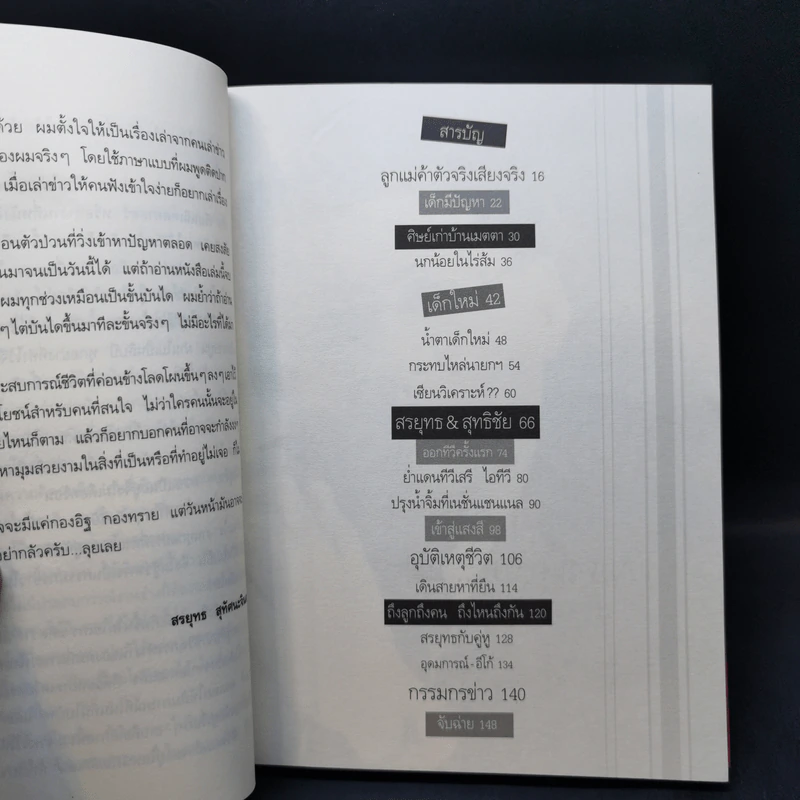 ด้วย ผมตั้งใจให้เป็นเรื่องเล่าจากคนเล่าข่าว
องผมจริงๆ โดยใช้ภาษาแบบที่ผมพูดติดปาก
เมื่อเล่าข่าวให้คนฟังเข้าใจง่ายก็อยากเล่าเรื่อง
อนตัวป่วนที่วิ่งเข้าหาปัญหาตลอด เคยสงสัย
นมาจนเป็นวันนี้ได้ แต่ถ้าอ่านหนังสือเล่มนี้จบ
ผมทุกช่วงเหมือนเป็นขั้นบันได ผมย้ำว่าถ้าอ่าน
ๆ ไต่บันไดขึ้นมาทีละขั้นจริงๆ ไม่มีอะไรที่ได้มา
ะสบการณ์ชีวิตที่ค่อนข้างโลดโผนขึ้นๆลงๆ
โยชน์สำหรับคนที่สนใจ ไม่ว่าใครคนนั้นจะอยู่ใน
ยไหนก็ตาม แล้วก็อยากบอกคนที่อาจจะกำลัง
หามุมสวยงามในสิ่งที่เป็นหรือที่ทำอยู่ไม่เจอ ก็ไม่
จจะมีแค่กองอิฐ กองทราย แต่วันหน้ามันอาจ
อย่ากลัวครับ...ลุยเลย
สรยุทธ สุทัศนะจิน
สารบัญ
ลูกแม่ค้าตัวจริงเสียงจริง 16
เด็กมีปัญหา 22
ศิษย์เก่าบ้านเมตตา 30
นกน้อยในไร่ส้ม 36
เด็กใหม่ 42
น้ำตาเด็กใหม่ 48
กระทบไหล่นายกฯ 54
เซียนวิเคราะห์?? 60
สรยุทธ & สุทธิชัย 66
ออกทีวีครั้งแรก 74
ย่ำแดนทีวีเสรี ไอทีวี 80
ปรุงน้ำจิ้มที่เนชั่นแชนแนล 90
เข้าสู่แสงสี 98
อุบัติเหตุชีวิต 106
เดินสายหาที่ยืน 114
ถึงลูกถึงคน ถึงไหนถึงกัน 120
สรยุทธกับคู่หู 128
อุดมการณ์-อีโก้ 134
กรรมกรข่าว 140
จับฉ่าย 148